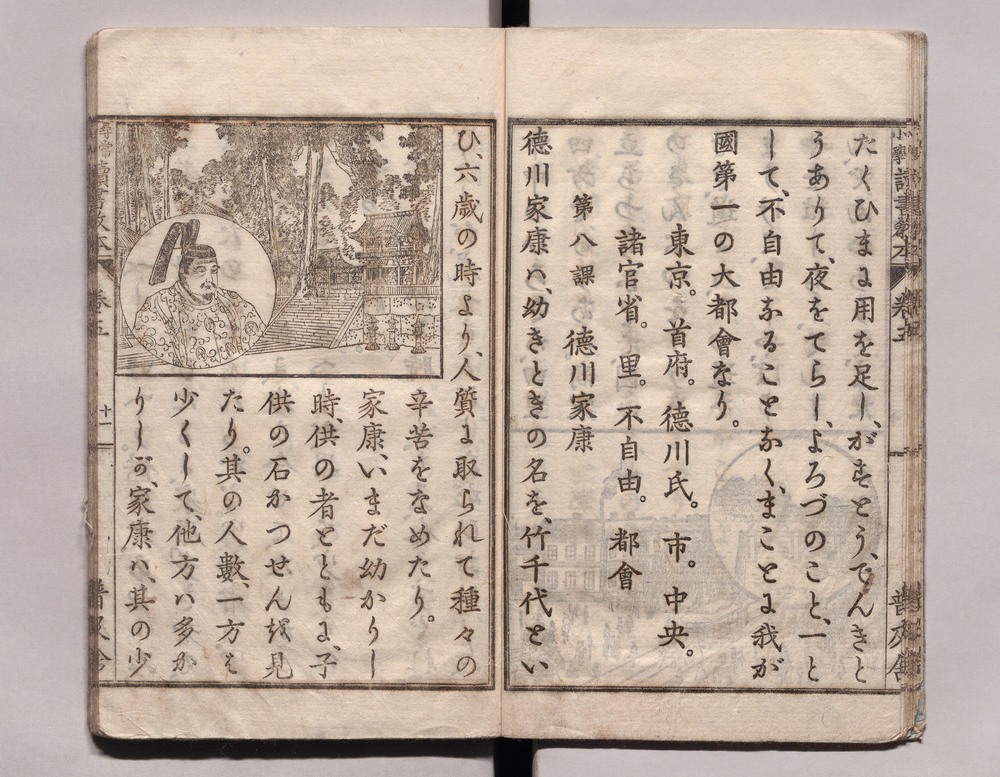 たくひまに用を足し、がすとう、でんきと
うありて、夜をてらし、よろづのこと、一と
して、不自由なることなく、まことに我が
國第一の大都會なり。
東京。首府。德川氏。市。中央。
諸官省。里。不自由。都會
第八課 德川家康
德川家康ハ、幼きときの名を、竹千代とい
ひ、六歲の時より、人質に取られて種々の
辛苦をなめたり。
家康、いまだ幼かりし
時、供の者とともに、子
供の石がつせんを見
たり。其の人數、一方ハ
少くして、他方ハ多か
りしが、家康ハ、其の少
卷五
普及舍
卷五
十一
普及舍